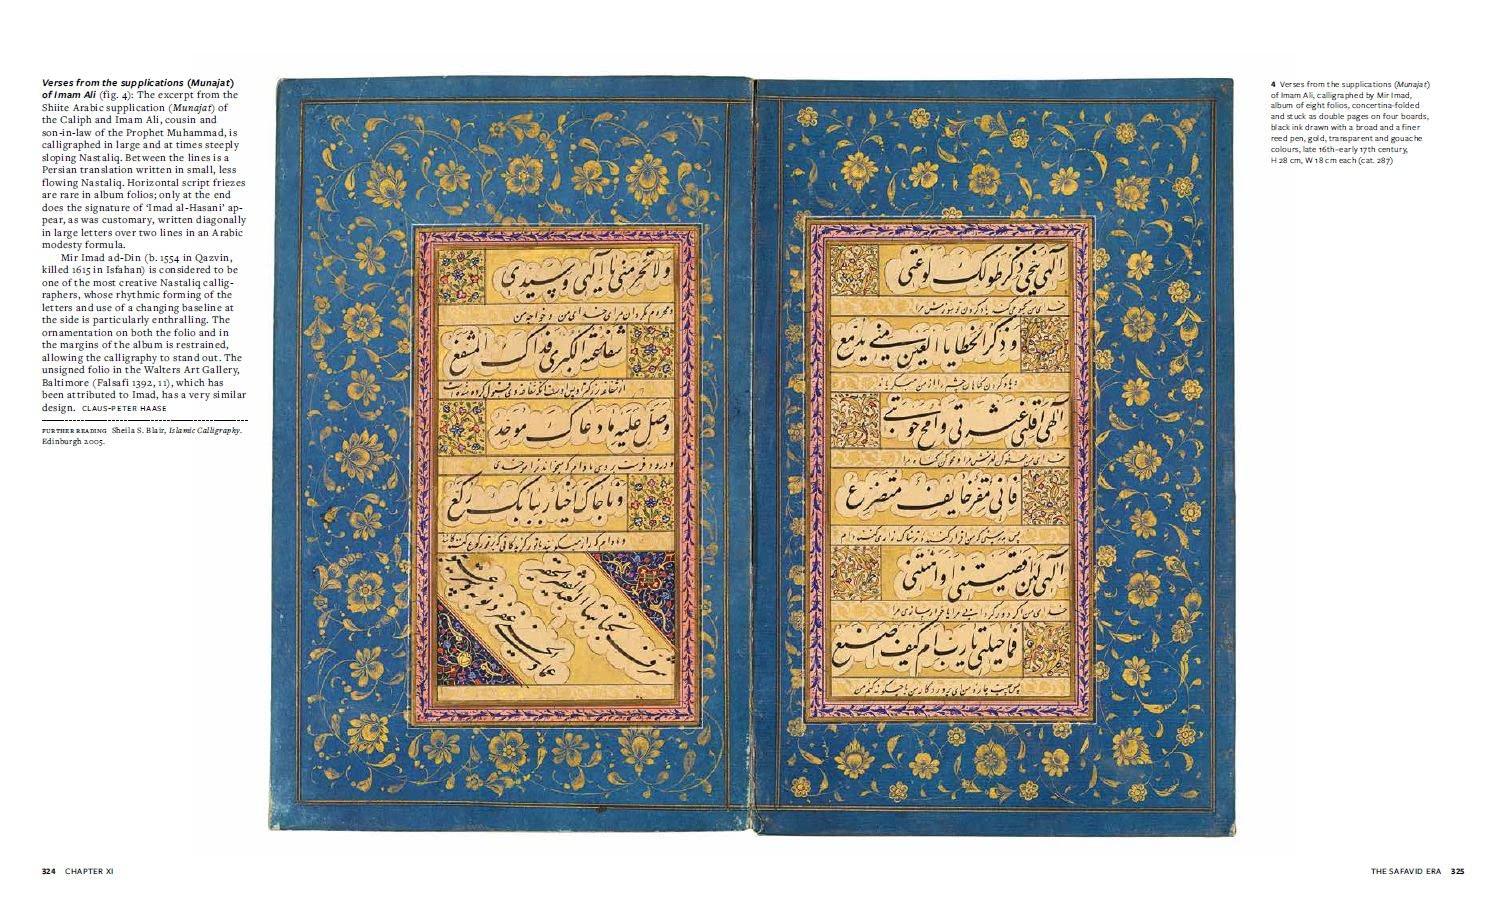 Verses from the supplications (Munajat)
of Imam Ali (fig. 4): The excerpt from the
Shiite Arabic supplication (Munajat) of
the Caliph and Imam Ali, cousin and
son-in-law of the Prophet Muhammad, is
calligraphed in large and at times steeply
sloping Nastaliq. Between the lines is a
Persian translation written in small, less
flowing Nastaliq. Horizontal script friezes
are rare in album folios; only at the end
does the signature of ‘Imad al-Hasani’ ap-
pear, as was customary, written diagonally
in large letters over two lines in an Arabic
modesty formula.
Mir Imad ad-Din (b. 1554 in Qazvin,
killed 1615 in Isfahan) is considered to be
one of the most creative Nastaliq callig-
raphers, whose rhythmic forming of the
letters and use of a changing baseline at
the side is particularly enthralling. The
ornamentation on both the folio and in
the margins of the album is restrained,
allowing the calligraphy to stand out. The
unsigned folio in the Walters Art Gallery,
Baltimore (Falsafi 1392, 11), which has
been attributed to Imad, has a very similar
design. CLAUS-PETER HAASE
FURTHER READING Sheila S. Blair, Islamic Calligraphy.
Edinburgh 2005.
الهی بنحنی ذکر طولک لوعتی
و ذکر الخطایا العین منی یدمع
الهی اقلنی عثرتی وامح حوبتی
فانی مقر خایف متضرع
الهی لئن اقصیتنی او اهنتنی
فما حیلتی یا رب ام کیف اصنع
ولا تحرمنی یا الهی و سیدی
شفاعته الکبری فذاک المشفع
وصل علیه ما دعاک موحد
وناجاک اخیار ببابک رکع
4 Verses from the supplications (Munajat)
of Imam Ali, calligraphed by Mir Imad,
album of eight folios, concertina-folded
and stuck as double pages on four boards,
black ink drawn with a broad and a finer
reed pen, gold, transparent and gouache
colours, late 16th–early 17th century,
H 28 cm, W 18 cm each (cat. 287)
324 CHAPTER XI
THE SAFAVID ERA 325